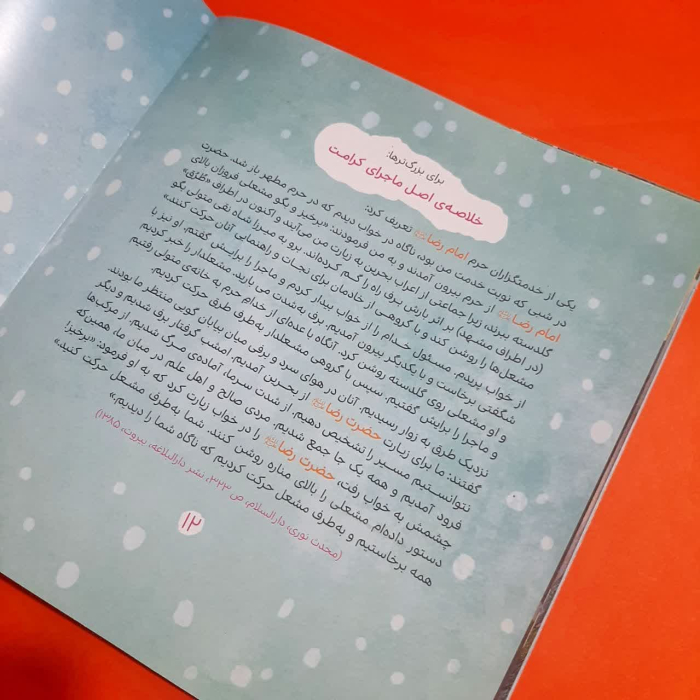 برای بزرگ‌ترها:
خلاصه‌ی اصل ماجرای کرامت
یکی از خدمتگزاران حرم امام رضا تعریف کرد:
در شبی که نوبت خدمت من بود، ناگاه در خواب دیدم که در حرم مطهر باز شد. حضرت
امام رضا از حرم بیرون آمدند و به من فرمودند: «برخیز و بگو مشعلی فروزان بالای
گلدسته ببرند، زیرا جماعتی از اعراب بحرین به زیارت من می‌آیند و اکنون در اطراف «طُرُق»
(در اطراف مشهد) بر اثر بارش برف راه را گم کرده‌اند. برو به میرزا شاه نقی متولی بگو
مشعل‌ها را روشن کند و با گروهی از خادمان برای نجات و راهنمایی آنان حرکت کنند.»
از خواب پریدم. مسئول خدام را از خواب بیدار کردم و ماجرا را برایش گفتم. او نیز با
شگفتی برخاست و با یکدیگر بیرون آمدیم. برف به‌شدت می بارید. مشعلدار را خبر کردیم
و او مشعلی روی گلدسته روشن کرد. آنگاه با عده‌ای از خدام حرم به خانه‌ی متولی رفتیم
و ماجرا را برایش گفتیم. سپس با گروهی مشعلدار به‌طرف طرق حرکت کردیم.
نزدیک طرق به زوار رسیدیم. آنان در هوای سرد و برفی میان بیابان گویی منتظر ما بودند.
گفتند: ما برای زیارت حضرت رضا از بحرین آمدیم. امشب گرفتار برف شدیم و دیگر
نتوانستیم مسیر را تشخیص دهیم. از شدت سرما، آماده‌ی مرگ شدیم. از مرکب‌ها
فرود آمدیم و همه یک جا جمع شدیم. مردی صالح و اهل علم در میان ما، همین‌که
چشمش به خواب رفت، حضرت رضا را در خواب زیارت کرد که به او فرمود: «برخیز!
دستور داده‌ام مشعلی را بالای مناره روشن کنند. شما به‌طرف مشعل حرکت کنید.»
همه برخاستیم و به‌طرف مشعل حرکت کردیم که ناگاه شما را دیدیم.»
(محدث نوری، دارالسلام، ص ۳۲۳، نشر دارالبلاغه، بیروت، ۱۳۸۵)
۱۲